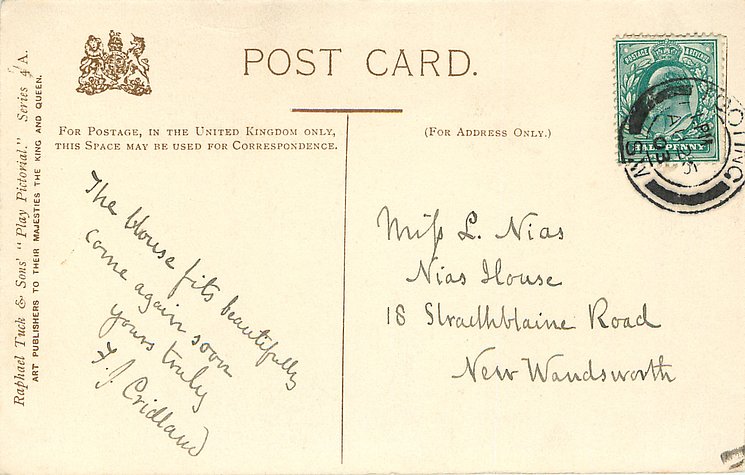 POST CARD.
FOR POSTAGE, IN THE UNITED KINGDOM ONLY,
THIS SPACE MAY BE USED FOR CORRESPONDENCE.
(FOR ADDRESS ONLY.)
Raphael Tuck & Sons' "Play Pictorial." Series 4 A.
ART PUBLISHERS TO THEIR MAJESTIES THE KING AND QUEEN.
The House fits beautifully
come again soon
yours truly
F. J Cridland
Miſs L. Nias
Nias House
18 Strathblaine Road
New Wandsworth
POSTAGE
HALFPENNY
TOOTING